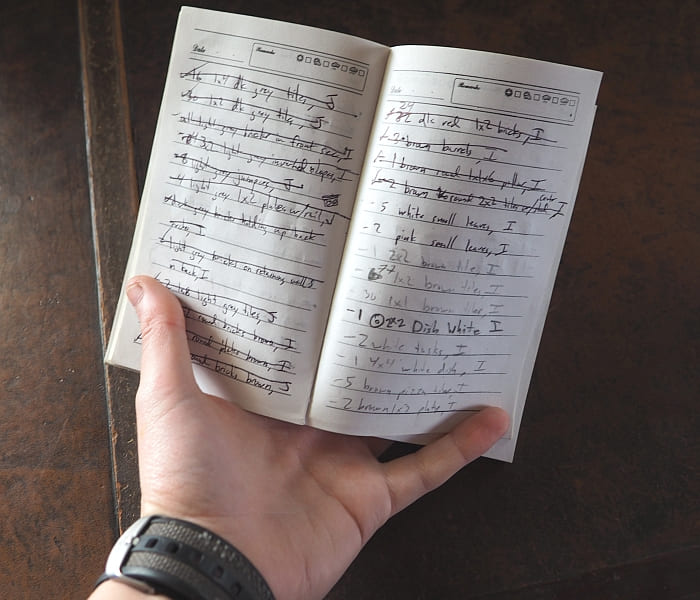 Date
Remarks
1x4 dk grey tiles, J
1x2 dk grey tiles, J
light grey bricks in front
light grey inverted slopes, I
light grey jumpers, J
4 light grey 1x2 plates w/rail,
grey bricks holding up back
light grey bricks on retaining wall
in back, I
light grey tiles, J
round bricks brown, I
round plates brown, I
round bricks brown, J
Date
Remarks
24
dk red 1x2 bricks, I
brown barrels, I
-1 brown
-2 brown round 2x2 tiles w/
-5 white small leaves, I
-2 pink small leaves, I
-1 2x2 brown tiles, I
1x2 brown tiles, I
30 1x1 brown tiles, I
-1 2x2 Dish White I
-2 white tusks, I
-1 4x4 white dish, I
-5 brown pizza tiles, I
-2 brown 1x2 plate, I